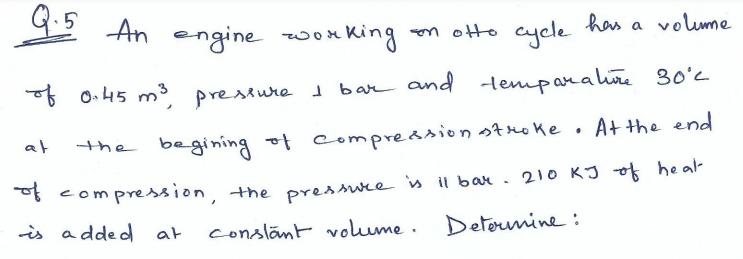 Q.5 An engine working on otto cycle has a volume
of 0.45 m³, pressure 1 bar and temparature 30°c
at the begining of compression stroke. At the end
of compression, the pressure is 11 bar. 210 KJ of heat
is added at constant volume. Determine: